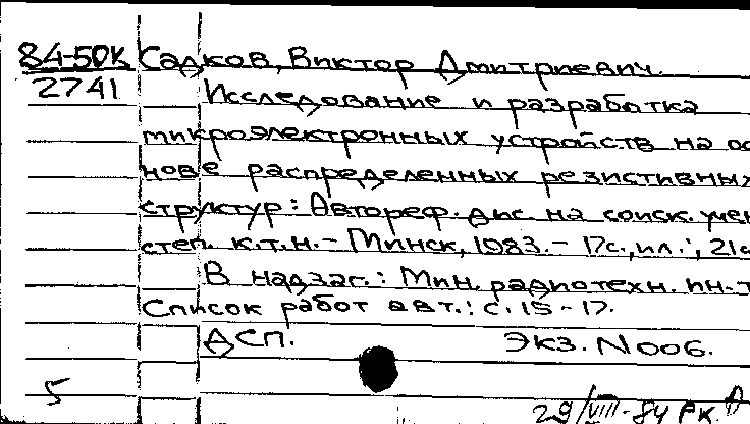 84-50К Садков, Виктор Дмитриевич.
2741 Исследование и разработка
микроэлектронных устройств на ос
нове распределенных резистивных
структур: Автореф. дис. на соиск. учен
степ. к.т.н. - Минск, 1983. - 17с., ил.; 21с
В надзаг.: Мин. радиотехн. ин-т
Список работ авт.: с. 15-17.
ДСП. Экз. N006.
5
29/VIII-84 РК.